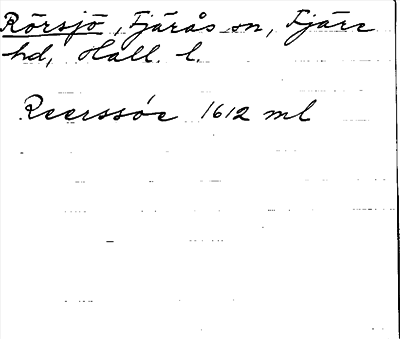 Rörsjö, Fjärås sn, Fjäre
hd, Hall. l.
Reerssöe 1612 ml